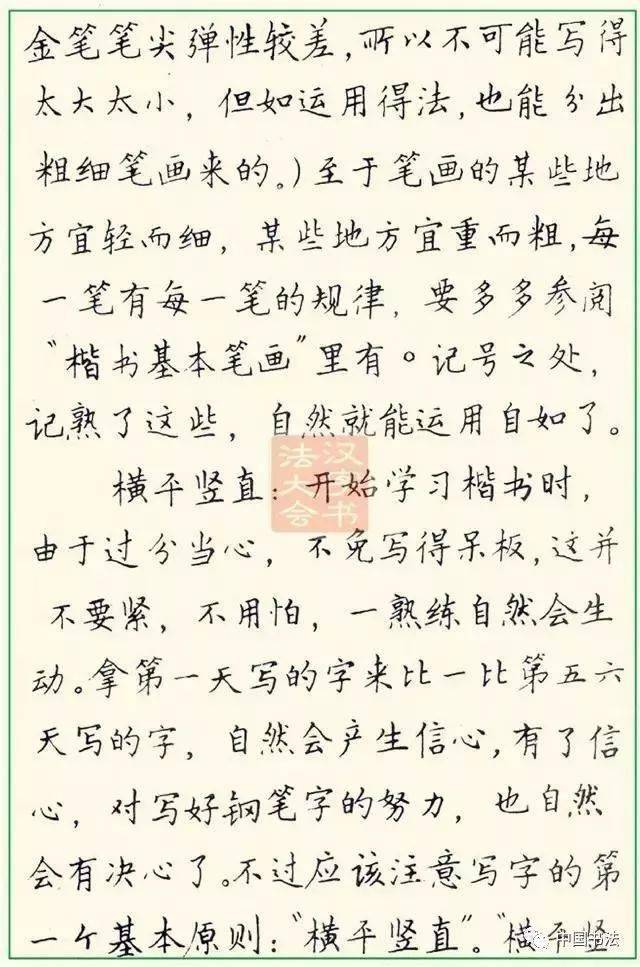 金笔笔尖弹性较差,所以不可能写得
太大太小，但如运用得法,也能分出
粗细笔画来的。)至于笔画的某些地
方宜轻而细，某些地方宜重而粗,每
一笔有每一笔的规律，要多多参阅
"楷书基本笔画"里有○记号之处，
记熟了这些，自然就能运用自如了。
横平竖直：开始学习楷书时，
由于过分当心，不免写得呆板,这并
不要紧，不用怕，一熟练自然会生
动。拿第一天写的字来比一比第五六
天写的字，自然会产生信心,有了信
心，对写好钢笔字的努力，也自然
会有决心了。不过应该注意写字的第
一个基本原则："横平竖直"。"横平竖
汉字书
法大会
中国书法